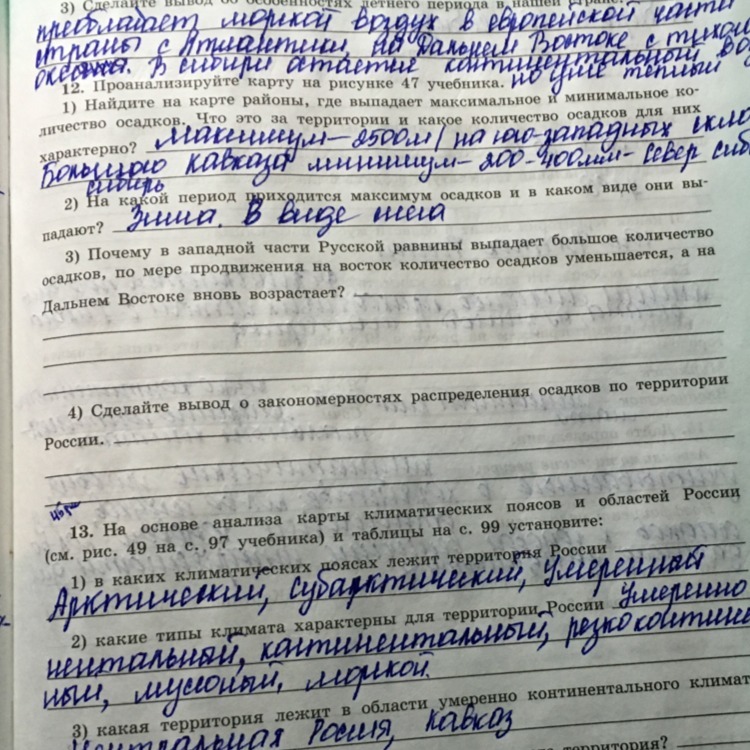 3) Сделайте вывод об особенностях летнего периода в нашей стране.
преобладает морской воздух в европейской части
страны с Атлантики, на Дальнем Востоке с тихого
океана. В сибири остается континентальный воз
12. Проанализируйте карту на рисунке 47 учебника. но уже теплый
1) Найдите на карте районы, где выпадает максимальное и минимальное ко-
личество осадков. Что это за территории и какое количество осадков для них
характерно? Максимум - 2500м/ на юго-западных скло
Большого кавказа минимум - 200-400мм - север сиб
сибирь
2) На какой период приходится максимум осадков и в каком виде они вы-
падают? Зима. В виде снега
3) Почему в западной части Русской равнины выпадает большое количество
осадков, по мере продвижения на восток количество осадков уменьшается, а на
Дальнем Востоке вновь возрастает?
4) Сделайте вывод о закономерностях распределения осадков по территории
России.
13. На основе анализа карты климатических поясов и областей России
(см. рис. 49 на с. 97 учебника) и таблицы на с. 99 установите:
1) в каких климатических поясах лежит территория России
Арктический, субарктический, умеренный
2) какие типы климата характерны для территории России Умеренно
нентальный, континентальный, резкоконтине
ный, муссоный, моркой.
3) какая территория лежит в области умеренно континентального климат
Центральная Россия, Кавказ
территория?